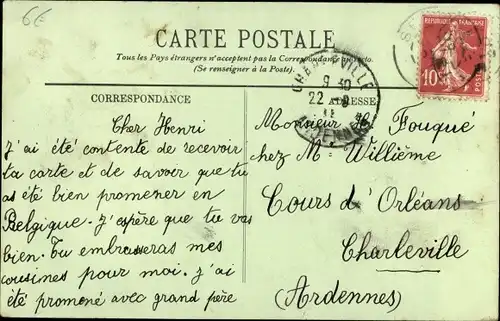 6€
CARTE POSTALE
Tous les Pays étrangers n'acceptent pas la Correspondance au recto.
(Se renseigner à la Poste).
CORRESPONDANCE
Cher Henri
J'ai été contente de recevoir
ta carte et de savoir que tu
as été bien promener en
Belgique. J'espère que tu vas
bien. Tu embrasseras mes
cousines pour moi. J'ai
été promené avec grand père
CHARLEVILLE
9 30
22
ARDENNES
ADRESSE
Monsieur Fouqué
chez M. Willième
Cours d'Orléans
Charleville
(Ardennes)
REPUBLIQUE FRANÇAISE
10
POSTES